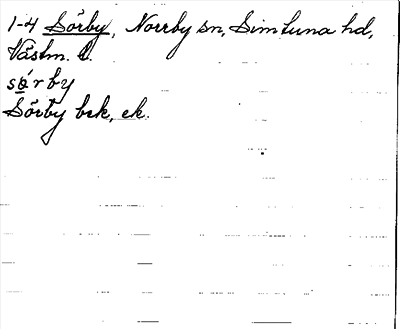 1-4 Sörby, Norrby sn, Simtuna hd,
Västm. l.
sǿrby
Sörby bsk, ek.